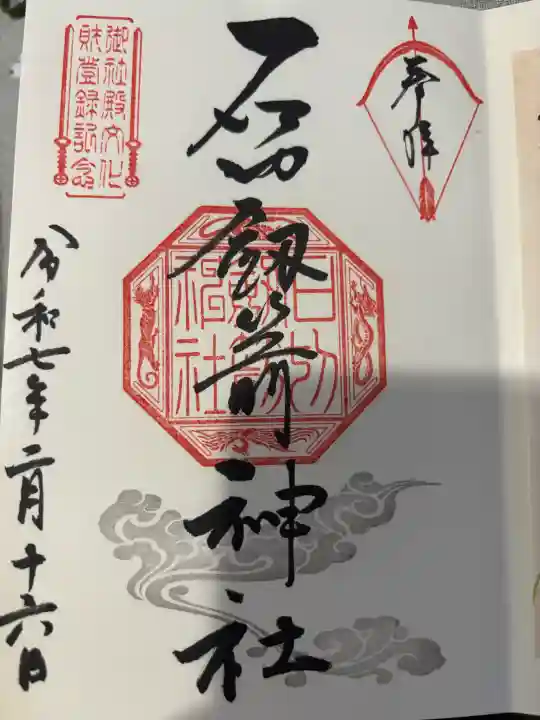 奉拝
石切劔箭神社
石切
劔箭
神社
御社殿文化
財登録記念
令和七年二月十六日